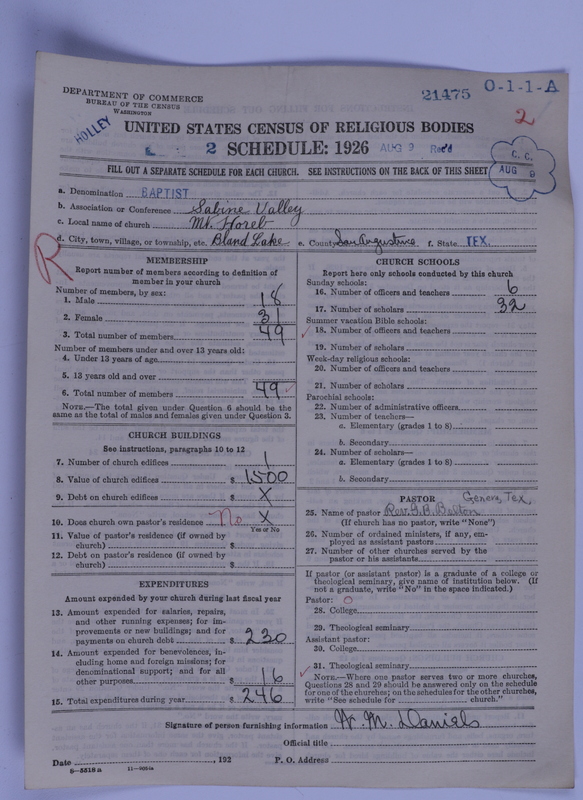 DEPARTMENT OF COMMERCE
BUREAU OF THE CENSUS
WASHINGTON
21475 O-1-1-A
2
HOLLEY
UNITED STATES CENSUS OF RELIGIOUS BODIES
2 SCHEDULE: 1926 AUG 9 Rec'd
C. C.
AUG 9
FILL OUT A SEPARATE SCHEDULE FOR EACH CHURCH. SEE INSTRUCTIONS ON THE BACK OF THIS SHEET
a. Denomination BAPTIST
b. Association or Conference Sabine Valley
c. Local name of church Mt. Horeb
d. City, town, village, or township, etc. Bland Lake e. County San Augustine f. State TEX.
R
MEMBERSHIP
Report number of members according to definition of
member in your church
Number of members, by sex:
1. Male 18
2. Female 31
3. Total number of members 49
Number of members under and over 13 years old:
4. Under 13 years of age
5. 13 years old and over
6. Total number of members 49
NOTE.—The total given under Question 6 should be the
same as the total of males and females given under Question 3.
CHURCH BUILDINGS
See instructions, paragraphs 10 to 12
7. Number of church edifices 1
8. Value of church edifices $ 1500
9. Debt on church edifices $ X
10. Does church own pastor's residence No X
Yes or No
11. Value of pastor's residence (if owned by
church) $
12. Debt on pastor's residence (if owned by
church) $
EXPENDITURES
Amount expended by your church during last fiscal year
13. Amount expended for salaries, repairs,
and other running expenses; for im-
provements or new buildings; and for
payments on church debt $ 230
14. Amount expended for benevolences, in-
cluding home and foreign missions; for
denominational support; and for all
other purposes $ 16
15. Total expenditures during year $ 246
CHURCH SCHOOLS
Report here only schools conducted by this church
Sunday schools:
16. Number of officers and teachers 6
17. Number of scholars 32
Summer vacation Bible schools:
18. Number of officers and teachers
19. Number of scholars
Week-day religious schools:
20. Number of officers and teachers
21. Number of scholars
Parochial schools:
22. Number of administrative officers
23. Number of teachers—
a. Elementary (grades 1 to 8)
b. Secondary
24. Number of scholars—
a. Elementary (grades 1 to 8)
b. Secondary
PASTOR Geneva, Tex.
25. Name of pastor Rev. G. B. Bolton
(If church has no pastor, write "None")
26. Number of ordained ministers, if any, em-
ployed as assistant pastors
27. Number of other churches served by the
pastor or his assistants
If pastor (or assistant pastor) is a graduate of a college or
theological seminary, give name of institution below. (If
not a graduate, write "No" in the space indicated.)
Pastor: O
28. College
29. Theological seminary
Assistant pastor:
30. College
31. Theological seminary
NOTE.—Where one pastor serves two or more churches,
Questions 28 and 29 should be answered only on the schedule
for one of the churches; on the schedules for the other churches,
write "See schedule for church."
Signature of person furnishing information W. M. Daniels
Official title
Date , 192 P. O. Address
8-5518a 11-9054a